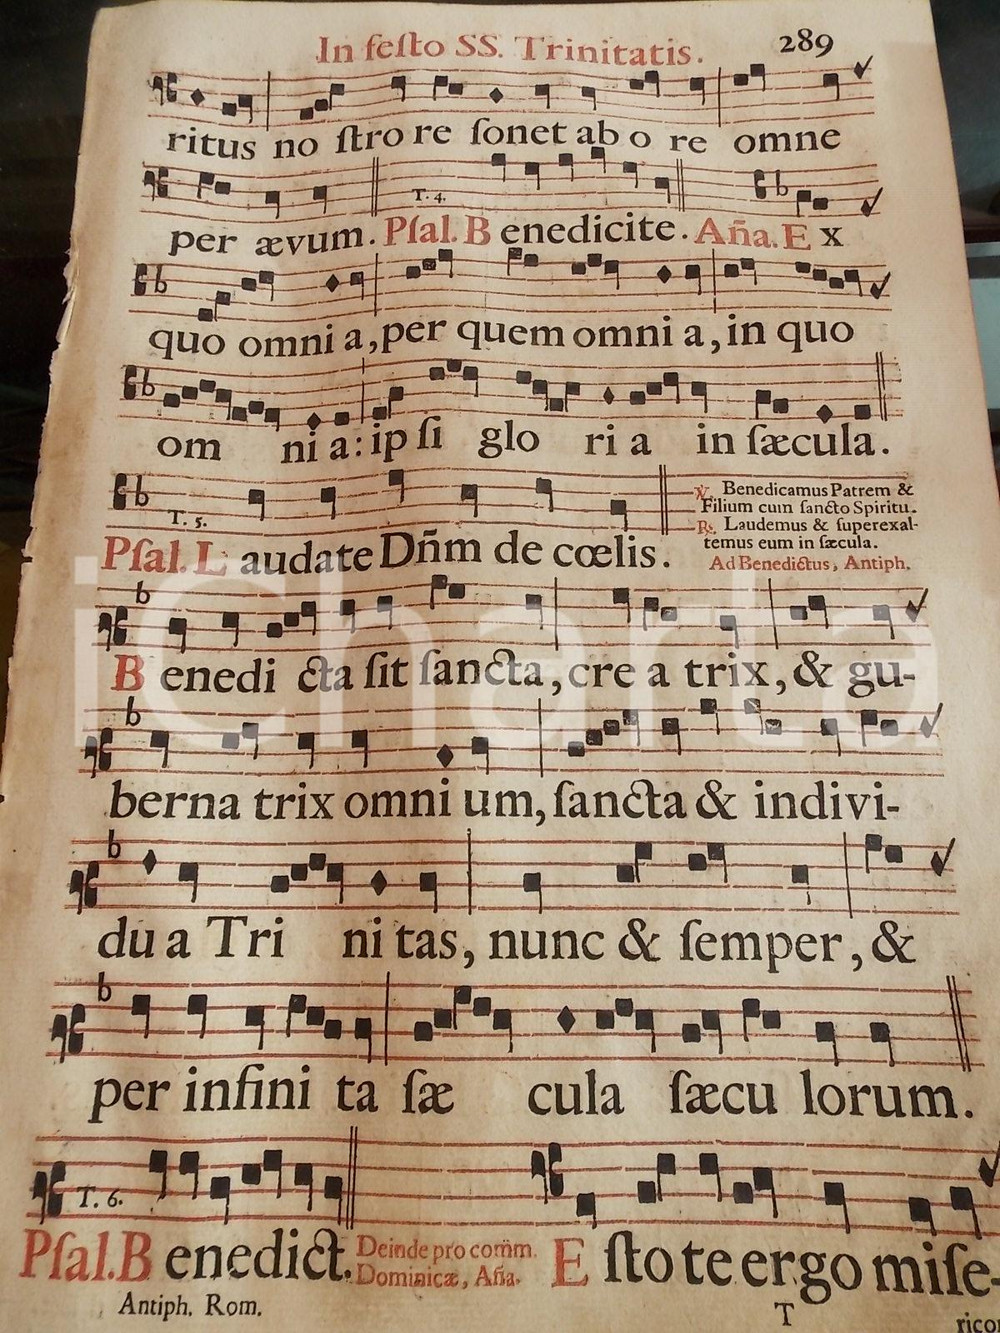 In feſto SS. Trinitatis. 289
ritus no ſtro re ſonet ab o re omne
T. 4.
per ævum. Pſal. B enedicite. Aña. E x
quo omni a, per quem omni a, in quo
om ni a: ip ſi glo ri a in ſæcula.
T. 5.
Pſal. L audate Dñm de cœlis.
℣. Benedicamus Patrem &
Filium cum ſancto Spiritu.
℟. Laudemus & ſuperexal-
temus eum in ſæcula.
Ad Benedictus, Antiph.
B enedi cta ſit ſancta, cre a trix, & gu-
berna trix omni um, ſancta & indivi-
du a Tri ni tas, nunc & ſemper, &
per infini ta ſæ cula ſæcu lorum.
T. 6.
Pſal. B enedict. Deinde pro com̃.
Dominicæ, Aña. E ſto te ergo miſe-
Antiph. Rom. T ricor
iCharta